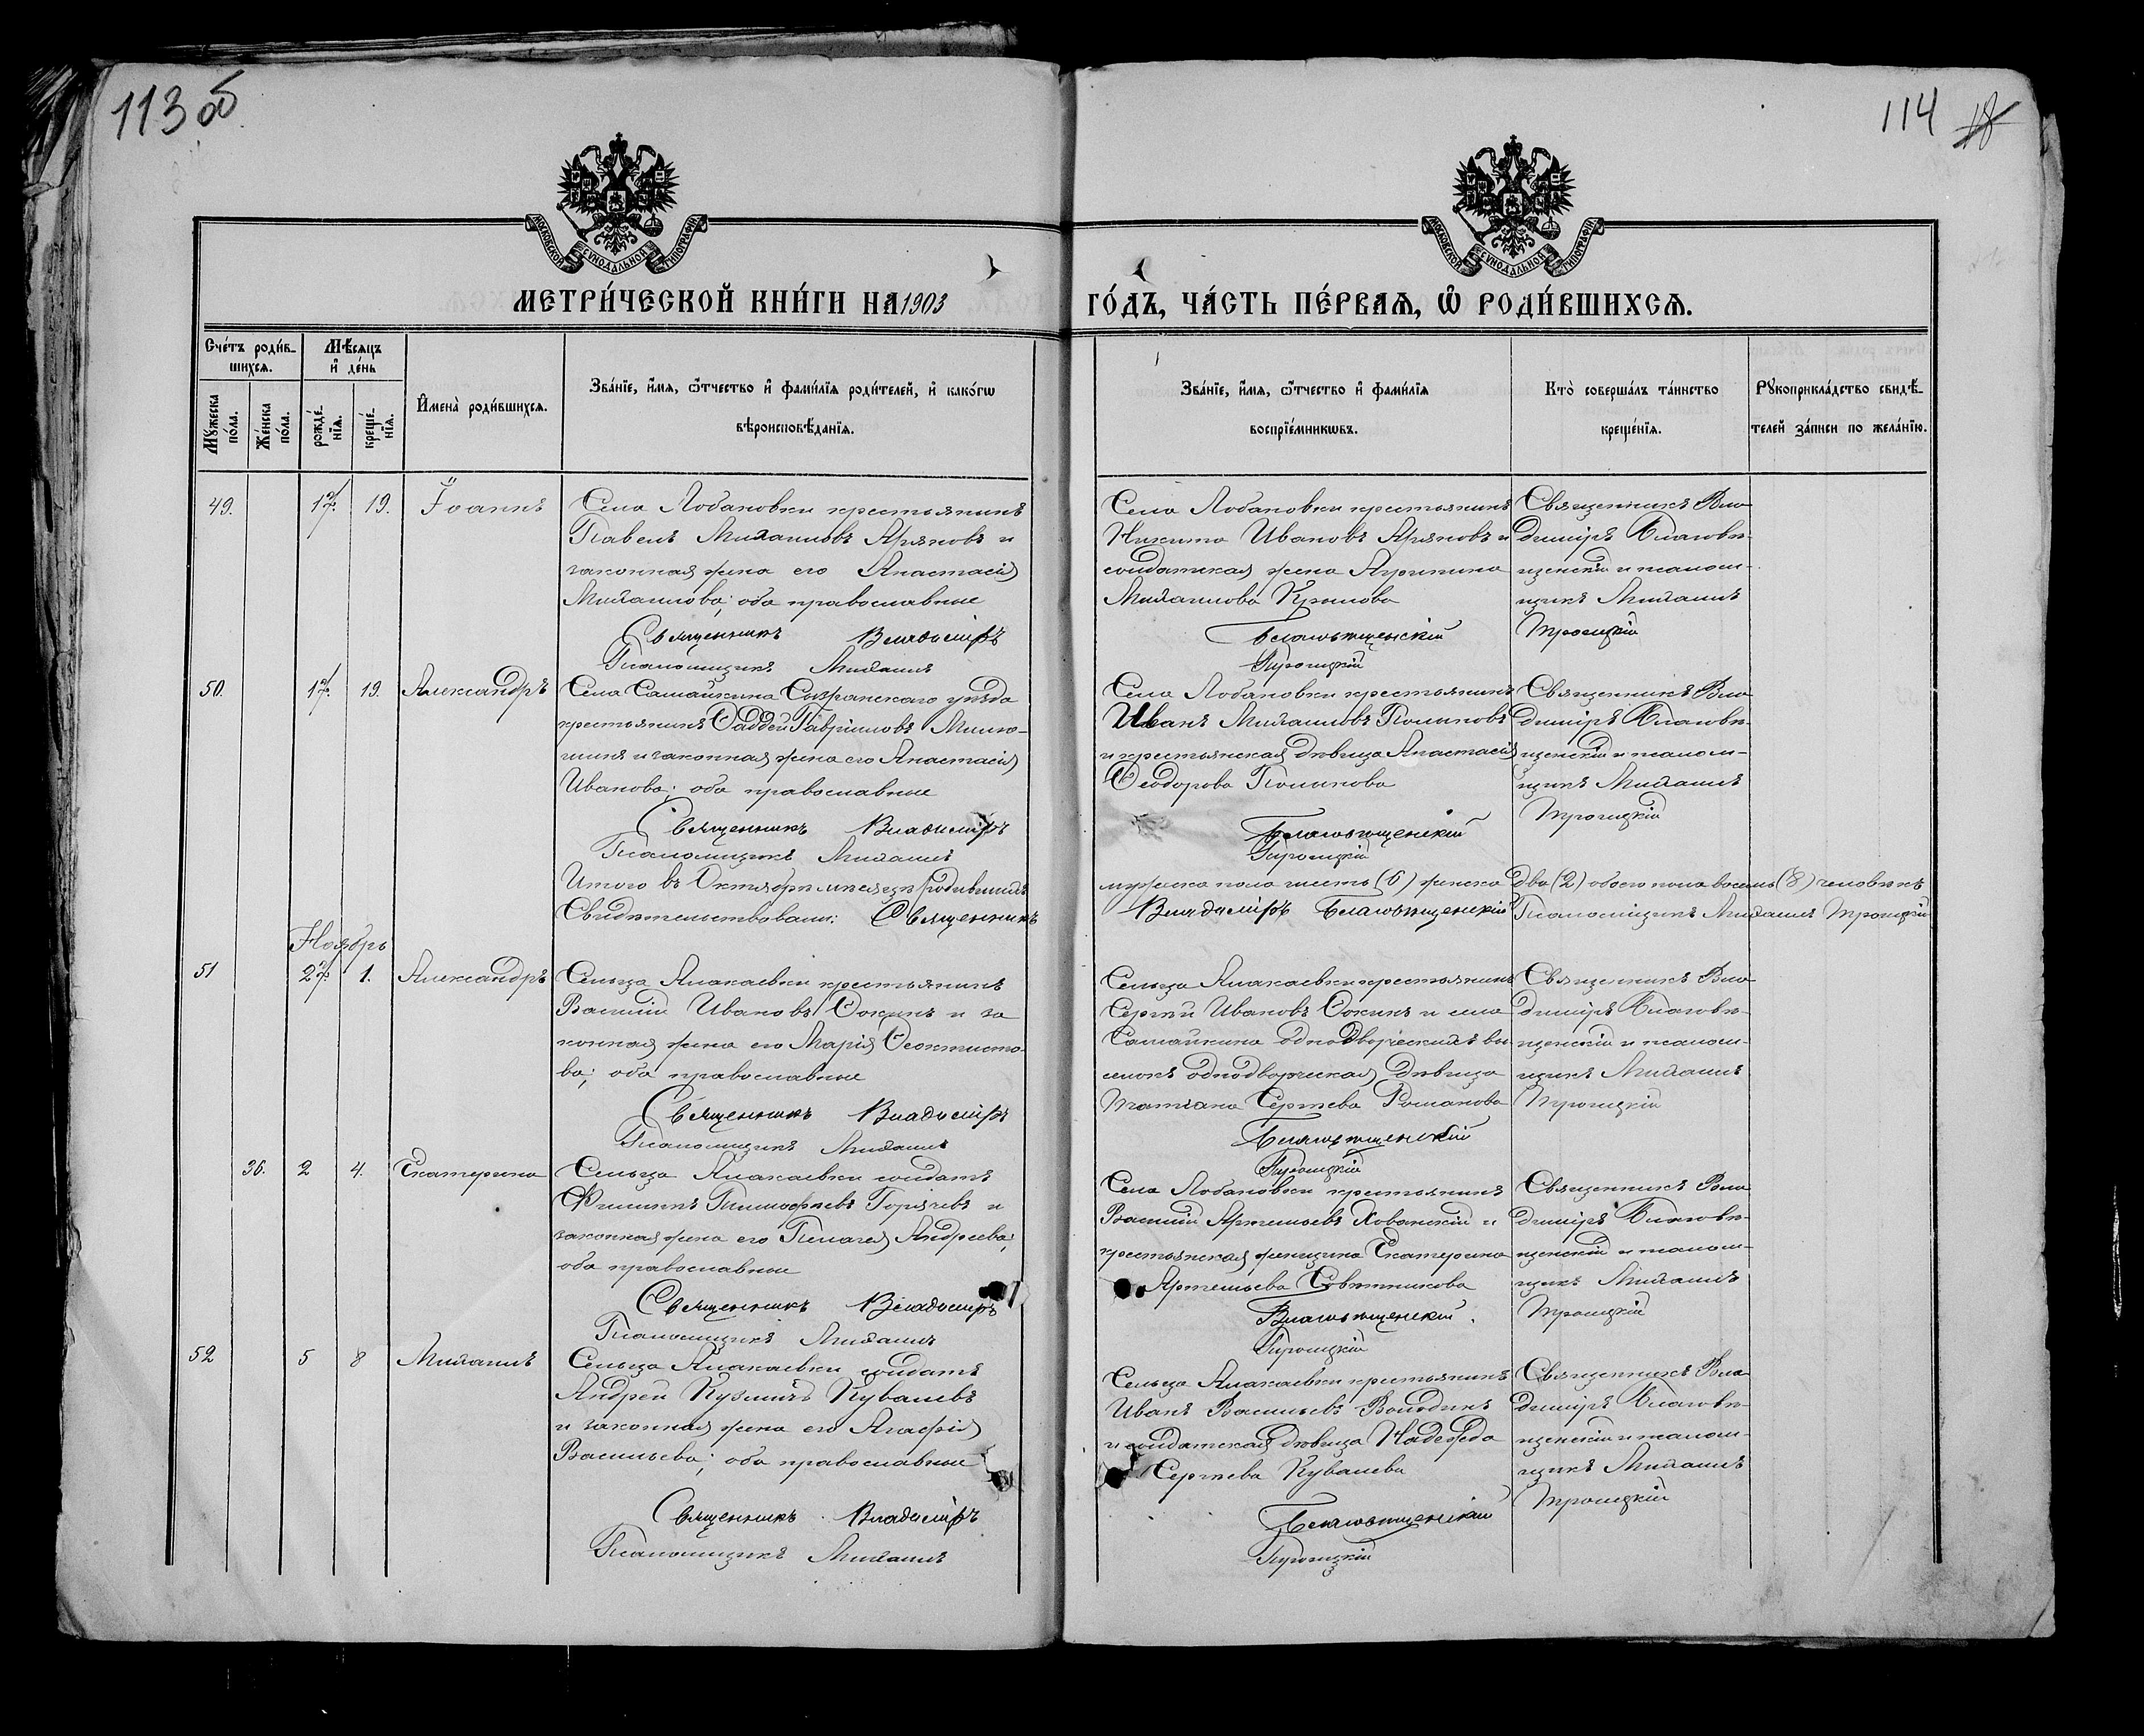 113 об
114
18
МОСКОВСКОЙ СѴНОДАЛЬНОЙ ТИПОГРАФІИ
МОСКОВСКОЙ СѴНОДАЛЬНОЙ ТИПОГРАФІИ
МЕТРИ́ЧЕСКОЙ КНИ́ГИ НА 1903 ГО́ДЪ, ЧА́СТЬ ПЕ́РВАѦ, Ѡ҆ РОДИ́ВШИХСѦ.
Сче́тъ роди́в-
шихсѧ.
Мꙋ́жеска
по́ла.
Же́нска
по́ла.
Мѣ́сѧцъ
и҆ де́нь
рожде́-
нїѧ.
креще́-
нїѧ.
И҆мена̀ роди́вшихсѧ.
Зва́нїе, и҆́мѧ, ѻ҆́тчество и҆ фами́лїѧ роди́телей, и҆ како́гѡ
вѣроисповѣ́данїѧ.
Зва́нїе, и҆́мѧ, ѻ҆́тчество и҆ фами́лїѧ
воспрїе́мникѡвъ.
Кто̀ соверша́лъ та́инство
креще́нїѧ.
Рꙋкоприкла́дство свидѣ́-
телей за́писи по жела́нїю.
49.
17.
19.
Іоаннъ
Села Лобановки крестьянинъ
Павелъ Михаиловъ Аряновъ и
законная жена его Анастасія
Михаилова; оба православные
Священникъ Владиміръ
Псаломщикъ Михаилъ
Села Лобановки крестьянинъ
Никита Ивановъ Аряновъ и
солдатская жена Агрипина
Михаилова Крылова
Благовѣщенскій
Троицкій
Священникъ Вла
диміръ Благовѣ-
щенскій и псалом-
щикъ Михаилъ
Троицкій
50.
17.
19.
Александръ
Села Самайкина Сызранскаго уѣзда
крестьянинъ Фаддей Гавріиловъ Милю-
шинъ и законная жена его Анастасія
Иванова; оба православные
Священникъ Владиміръ
Псаломщикъ Михаилъ
Села Лобановки крестьянинъ
Иванъ Михаиловъ Полыновъ
и крестьянская дѣвица Анастасія
Ѳеодорова Полынова
Благовѣщенскій
Троицкій
Священникъ Вла
диміръ Благовѣ-
щенскій и псалом-
щикъ Михаилъ
Троицкій
Итого въ Октябрѣ мѣсяцѣ родившихся мужеска пола шесть (6) женска два (2) обоего пола восемь (8) человѣкъ
Свидѣтельствовали: Священникъ Владиміръ Благовѣщенскій Псаломщикъ Михаилъ Троицкій
Ноябрь
51
27.
1.
Александръ
Сельца Алакаевки крестьянинъ
Василій Ивановъ Сокинъ и за
конная жена его Марія Ѳеоктисто-
ва; оба православные
Священникъ Владиміръ
Псаломщикъ Михаилъ
Сельца Алакаевки крестьянинъ
Сергѣй Ивановъ Сокинъ и села
Самайкина однодворческихъ вы
селокъ однодворческая дѣвица
Татіана Сергѣева Романова
Благовѣщенскій
Троицкій
Священникъ Вла
диміръ Благовѣ-
щенскій и псалом-
щикъ Михаилъ
Троицкій
36.
2
4.
Екатерина
Сельца Алакаевки солдатъ
Филиппъ Тимофѣевъ Горячевъ и
законная жена его Пелагея Андреева;
оба православные
Священникъ Владиміръ
Псаломщикъ Михаилъ
Села Лобановки крестьянинъ
Василій Артемьевъ Хованскій и
крестьянская женщина Екатерина
Артемьева Совѣтникова
Благовѣщенскій.
Троицкій
Священникъ Вла
диміръ Благовѣ-
щенскій и псалом-
щикъ Михаилъ
Троицкій
52
5
8
Михаилъ
Сельца Алакаевки солдатъ
Андрей Кузмичъ Кувалевъ
и законная жена его Агафія
Васильева; оба православные
Священникъ Владиміръ
Псаломщикъ Михаилъ
Сельца Алакаевки крестьянинъ
Иванъ Васильевъ Володинъ
и солдатская дѣвица Надежда
Сергѣева Кувалева
Благовѣщенскій
Троицкій
Священникъ Вла
диміръ Благовѣ-
щенскій и псалом-
щикъ Михаилъ
Троицкій